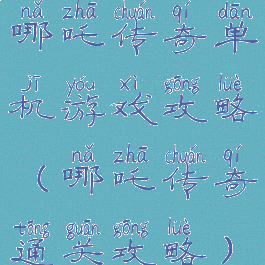 nǎ zhā chuán qí dān
哪吒传奇单
jī yóu xì gōng lüè
机游戏攻略
nǎ zhā chuán qí
（哪吒传奇
tōng guān gōng lüè
通关攻略）